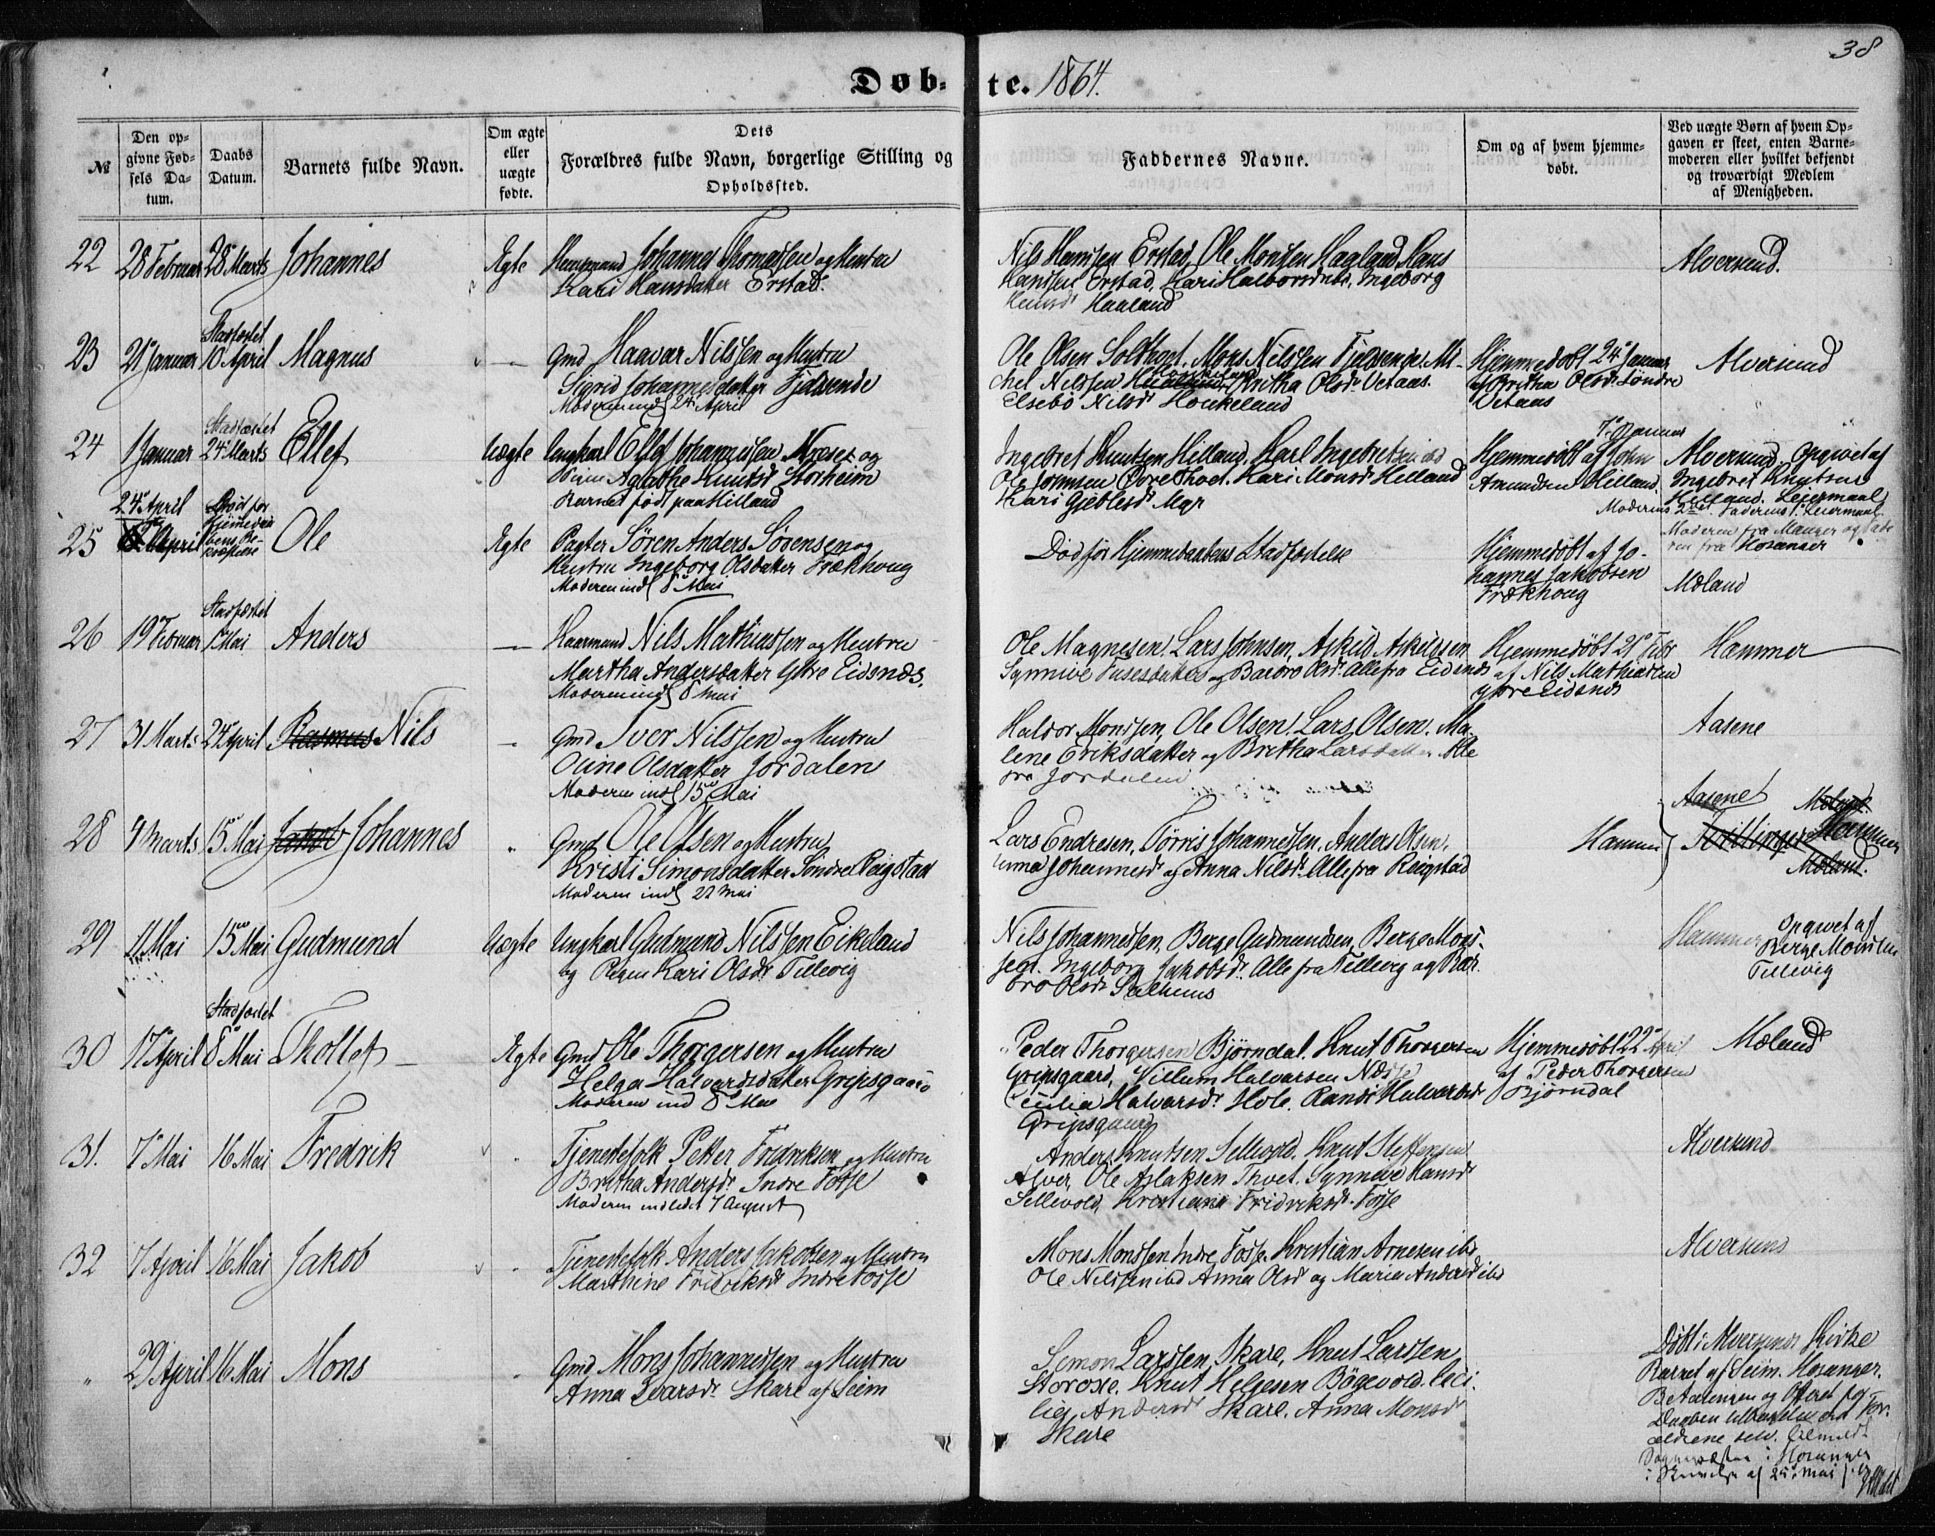 38
Døb- te. 1864.
№
Den opgivne Fødsels Datum.
Daabs Datum.
Barnets fulde Navn.
Om ægte eller uægte fødte.
Dets Forældres fulde Navn, borgerlige Stilling og Opholdssted.
Faddernes Navne.
Om og af hvem hjemmedøbt.
Ved uægte Børn af hvem Opgaven er skeet, enten Barnemoderen eller hvilket bekjendt og troværdigt Medlem af Menigheden.
22 28 Februar 28 Marts Johannes Ægte Johannes Thomassen og Hustru
Kari Hansdatter Erstad.
Nils Hanssen Erstad, Ole Monsen Hagland, Hans
Hanssen Erstad, Kari Halvorsdatt, Ingeborg
Haaland
Alversund.
23 21 Januar Stadfæstet 10 April Magnus — Gmd Haavar Nilssen og Hustru
Sigrid Johannesdatter Fjdsende
Moderen indl 24 April
Ole Olsen Soltvedt. Mons Nilssen Fjeldsende, Mi-
chel Nilssen Houkeland Britha Olsd Vetaas.
Elsebö Nilsd Houkeland
Hjemmedöbt 24 Januar
af Britha Olsd. Söndre
Vetaas
Alversund
24 1 Januar Stadfæstet 24 Marts Ellef Uægte Ungkarl Ellef Johannesen og
Pigen Agathe Knutsd Storheim
Barnet födt paa Hilland
Ingebret Knutsen Hilland. Karl Ingebretsen ibd
Øvre Thvet. Kari Monsd Hilland
Kari Gjeblesd
7 Januar
Hjemmedöbt af John
Amundsen Hilland
Alversund Opgivet af
Ingebret Knutsen
Hilland. Leiermaal
Moderens 2det Faderens 1. Leiermaal.
Moderen fra Manger og Fade
ren fra Hosanger
25 24 April Død for Hjemmedaabens Ole Ægte Pagter Sören Anders Sörensen og
Hustru Ingeborg Olsdatter Trækhoug
Moderen indl 8 Mai
Död før Hjemmedaabens Stadfæstelse
Hjemmedöbt af Jo-
hannes Jakobsen
Trækhoug
Mæland
26 19 Februar Stadfæstet 1 Mai Anders — Huusmand Nils Mathiassen og Hustru
Martha Andersdatter Ytre Eidsnæs.
Moderen indl 8 Mai
Ole Magnesen. Lars Johnsen, Askild Askildsen
Synnive og Barbro Olsd. Alle fra Eidsnæs
Hjemmedöbt 21 Febr
af Nils Mathiassen
Ytre Eidsnæs
Hammer
27 31 Marts 24 April Rasmus Nils — Gmd Iver Nilssen og Hustru
Oline Olsdatter Jordalen
Moderen indl 15 Mai
Haldor Mondsen, Ole Olsen. Lars Olsen. Ma-
lene Eriksdatter og Britha Larsdatter Alle
fra Jordalen
Aasene
28 4 Marts 15 Mai Jakob Johannes " Gmd Ole Olsen og Hustru
Kristi Simonsdatter Söndre Reigstad
Moderen indl 22 Mai
Lars Endresen, Törris Johannessen, Anders Olsen.
Johannesd og Anna Nilsd. Alle fra Reigstad
Hammer
Aasene Mæland
Hammer
Mæland
29 11 Mai 15 Mai Gudmund Uægte Ungkarl Gudmund Nilssen Eikeland
og Pigen Kari Olsd Tellevig
Nils Johannessen, Berge Gudmundsen, Berge Mons-
sen. Ingeborg Jakobsd. Alle fra Tellevig og Bar-
bro Olsd Salhuus
Hammer Opgivet af
Berge Monsen
Tellevig
30 17 April Stadfæstet 8 Mai Thollef — Ægte Gmd Ole Thorgersen og Hustru
Helga Halvardsdatter Gripsgaard
Moderen ind 8 Mai
Peder Thorgersen Björndal. Knut Thorgersen
Gripsgaard, Villum Halvarsen Næsse
Cecilia Halvarsd Hole. Randi Halvarsd
Gripsgaard
Hjemmedöbt 22 April
af Peder Thorgersen
Björndal
Mæland
31. 7 Mai 16 Mai Fredrik " Tjenestefolk Petter Fridriksen og Hustru
Britha Andersd. Indre Fosse
Moderen indledet 7 August
Anders Knutsen Sellevold. Knut Steffensen
Alver, Ole Aslaksen Thvet. Synneve Hansd
Sellevold, Kristiane Fridriksd. Fosse
Alversund
32 7 April 16 Mai Jakob " Tjenestefolk Anders Jakobsen og Hustru
Marthine Fridriksd Indre Fosse
Mons Monssen Indre Fosse. Kristian Arnesen ibd,
Ole Nilssen ibd Anna Olsd og Maria Andersd ibd
Alversund
" 29 April 16 Mai Mons " Gmd Mons Johannessen og Hustru
Anna Ivarsd Skare af Seim
Simon Larssen, Skare, Knut Larssen
Storoxe. Knut Helgesen Bögevold. Ceci-
lie Andersd Skare. Anna Monsd
Skare
Döbt i Alversunds Kirke
Barnet af Seim. Hosanger.
Betalingen og Offeret for
Daaben
ældrene selv. Anmeldt
i Hosanger
i Skrivelse af 25 Mai